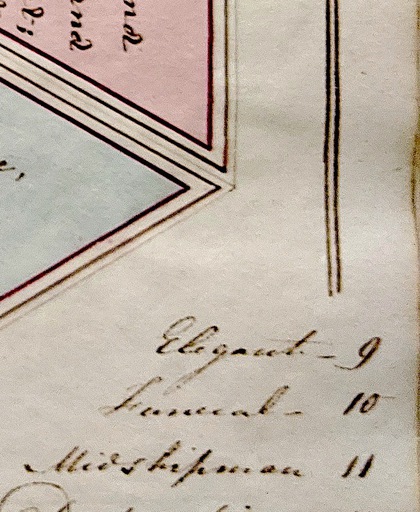 and
and
Elegant - 9
Funeral - 10
Midshipman 11